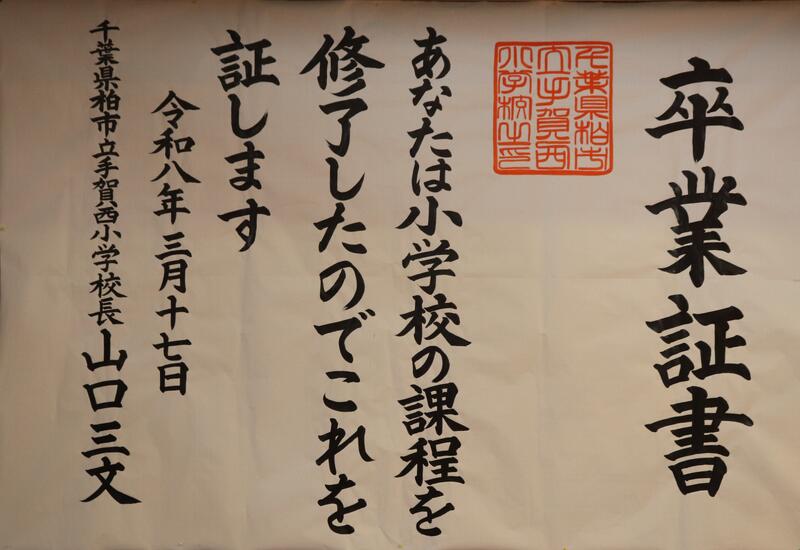 卒業証書
千葉県柏市
立手賀西
小学校之印
あなたは小学校の課程を
修了したのでこれを
証します
令和八年三月十七日
千葉県柏市立手賀西小学校長山口三文